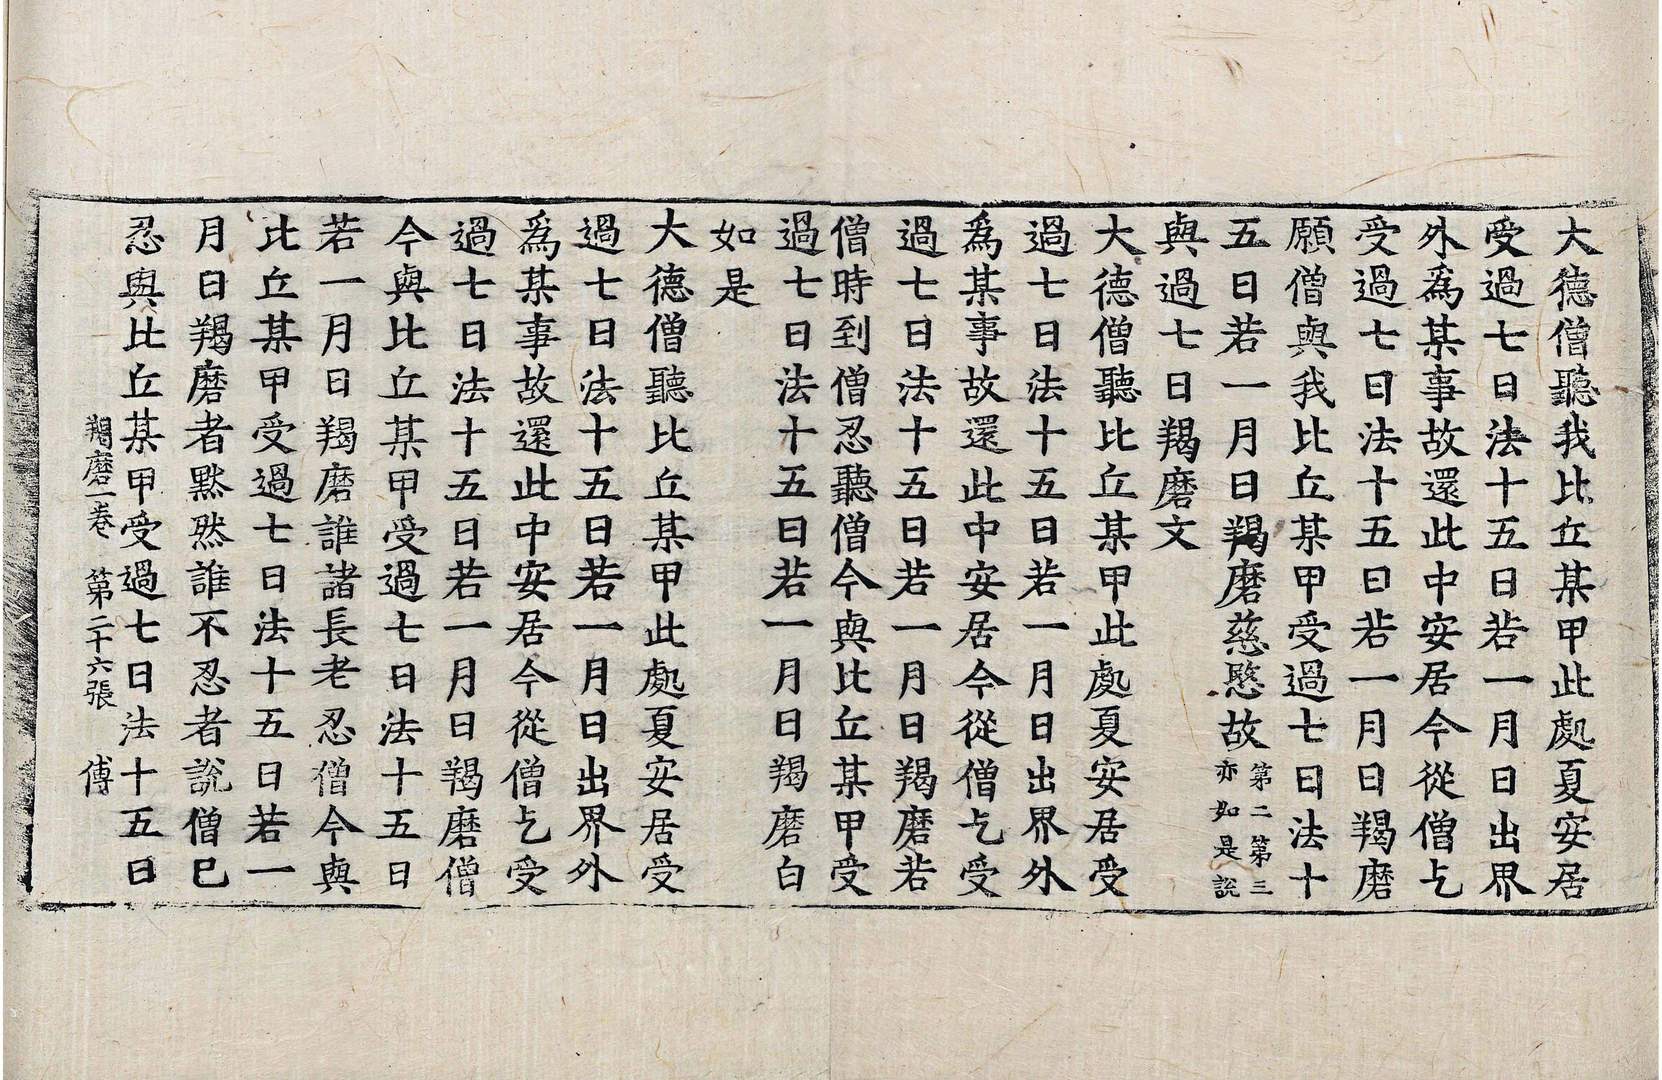 大德僧聽我比丘某甲此處夏安居
受過七日法十五日若一月日出界
外爲某事故還此中安居今從僧乞
受過七日法十五日若一月日羯磨
願僧與我比丘某甲受過七日法十
五日若一月日羯磨慈愍故第二第三亦如是說
與過七日羯磨文
大德僧聽比丘某甲此處夏安居受
過七日法十五日若一月日出界外
爲某事故還此中安居今從僧乞受
過七日法十五日若一月日羯磨若
僧時到僧忍聽僧今與比丘某甲受
過七日法十五日若一月日羯磨白
如是
大德僧聽比丘某甲此處夏安居受
過七日法十五日若一月日出界外
爲某事故還此中安居今從僧乞受
過七日法十五日若一月日羯磨僧
今與比丘某甲受過七日法十五日
若一月日羯磨誰諸長老忍僧今與
比丘某甲受過七日法十五日若一
月日羯磨者默然誰不忍者說僧已
忍與比丘某甲受過七日法十五日
羯磨一卷 第二十六張 傅